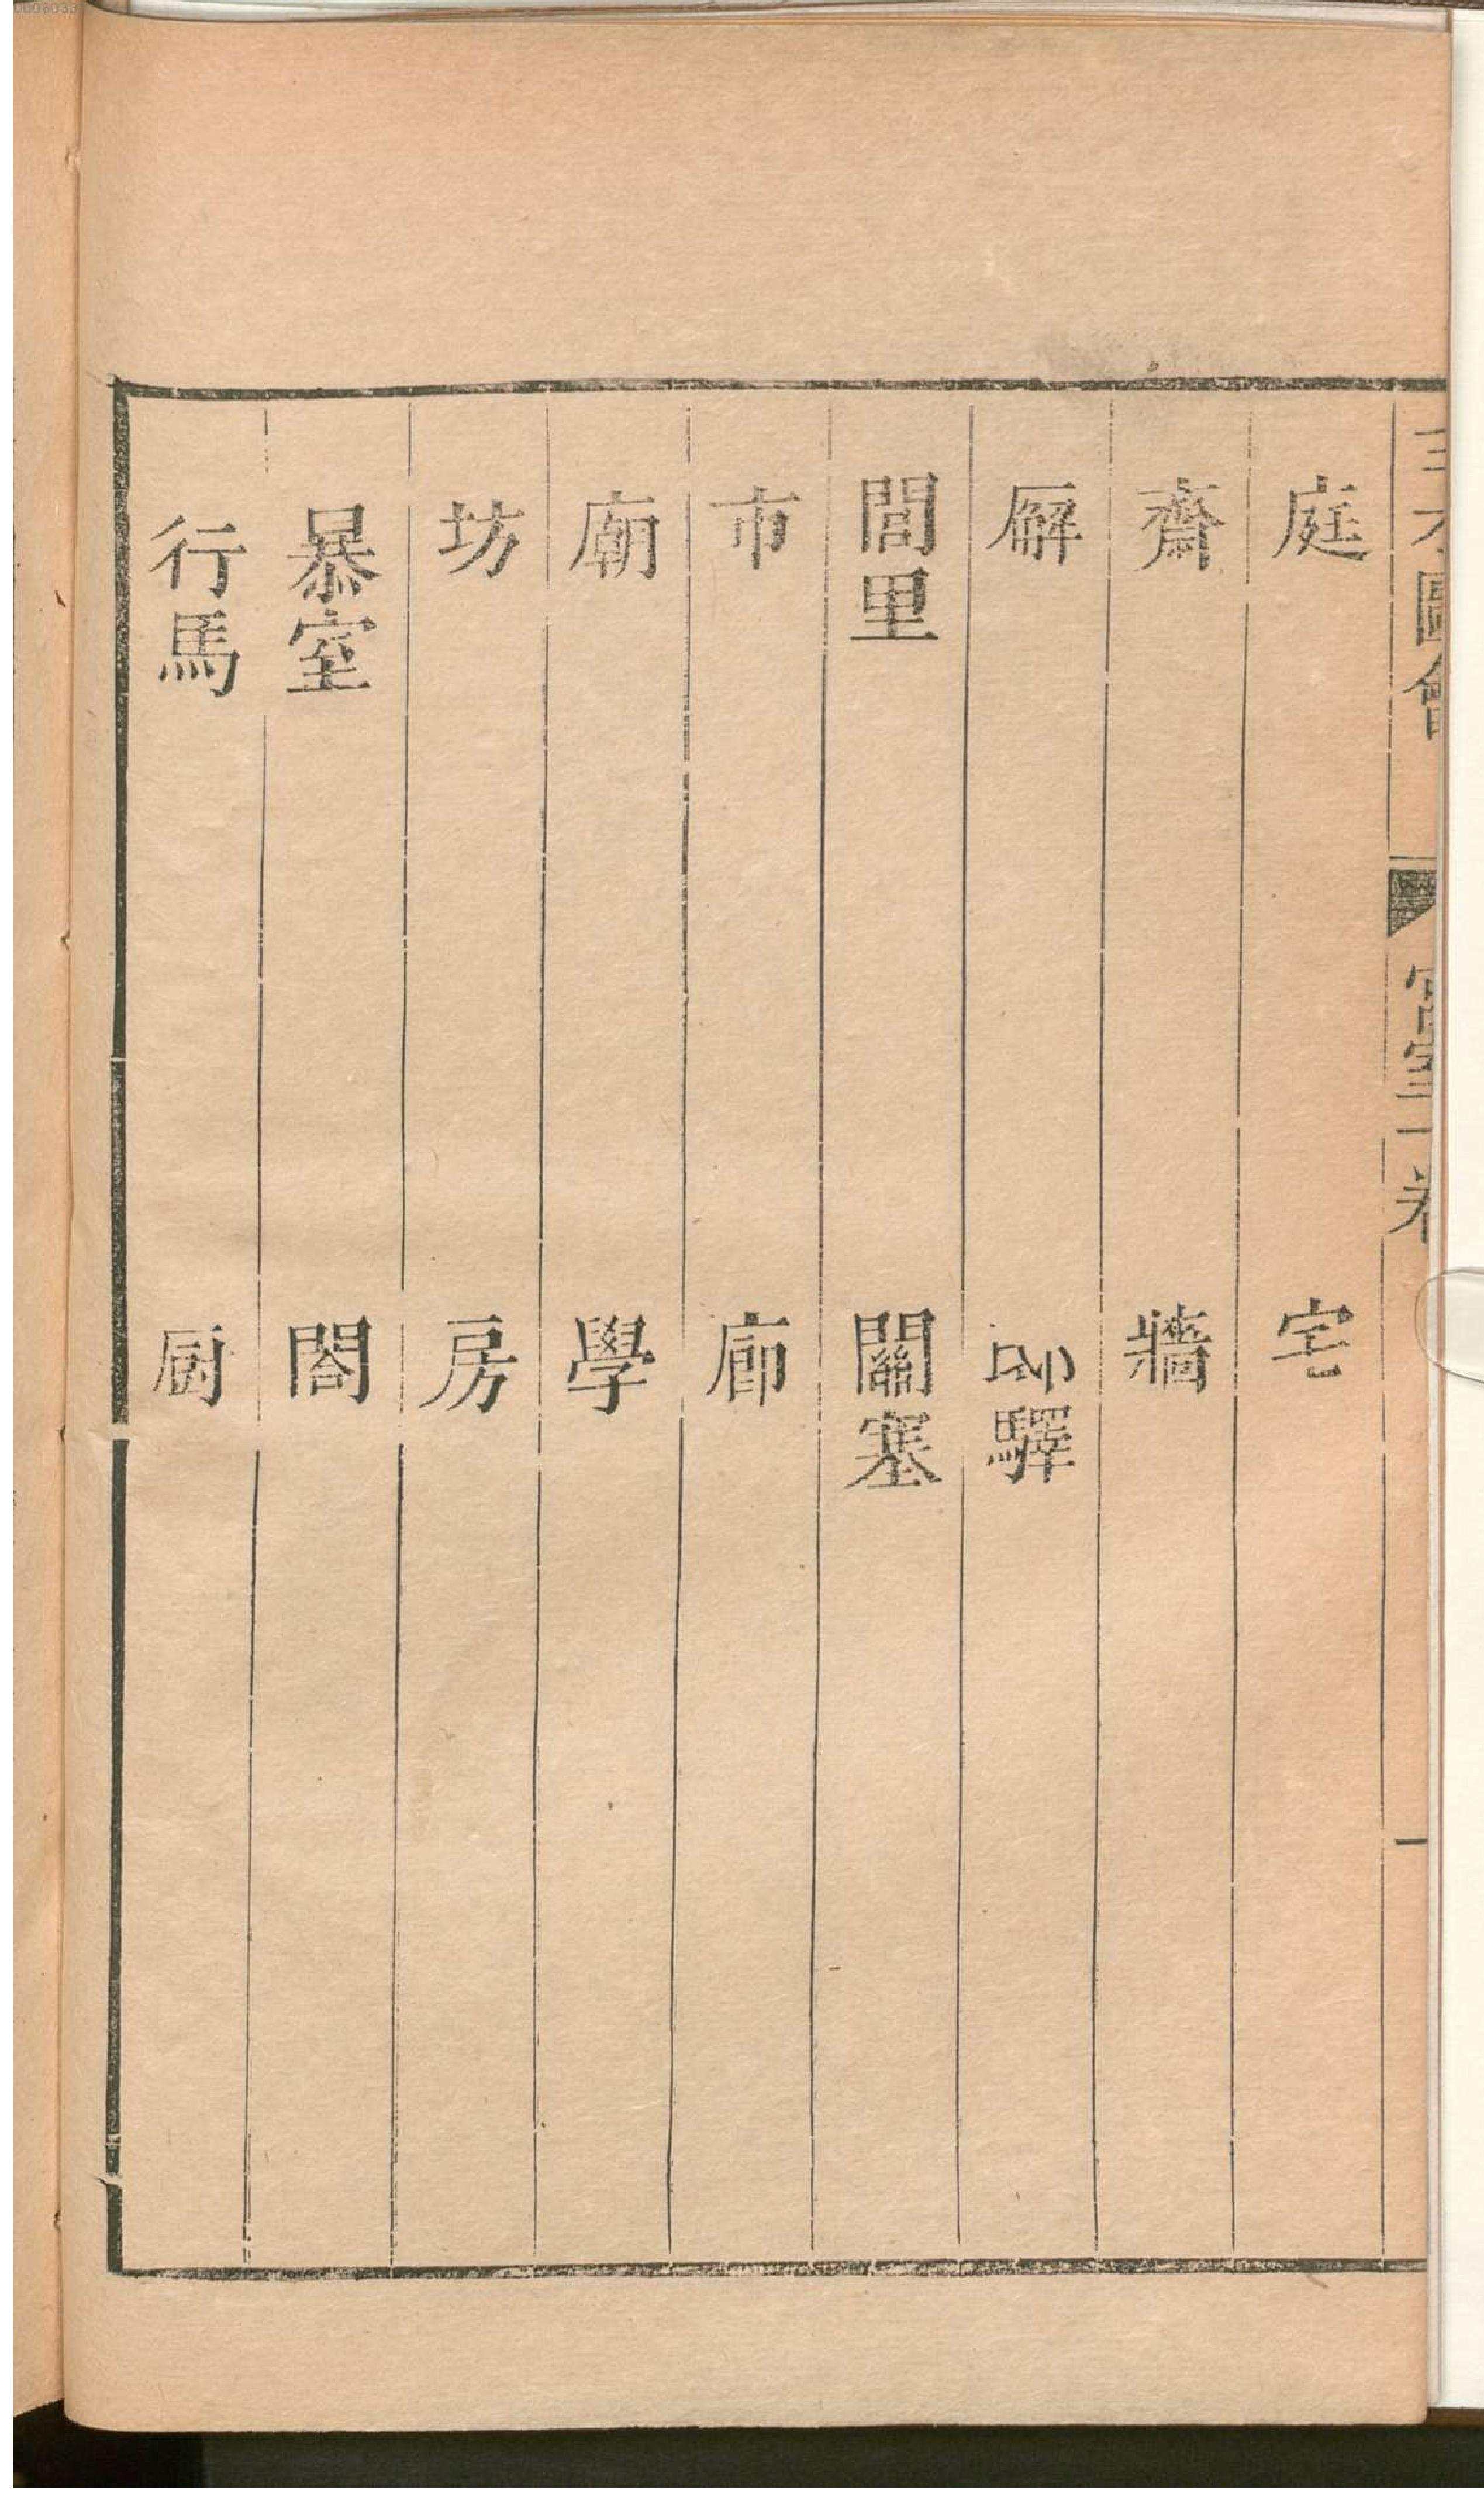 三才圖會 宮室一卷 一
庭 宅
齋 牆
廨 邸驛
閭里 關塞
市 廊
廟 學
坊 房
暴室 閤
行馬 厨